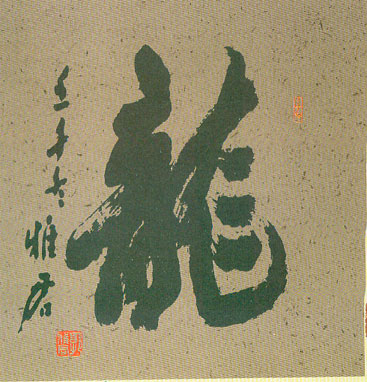 龍
壬午冬雅君